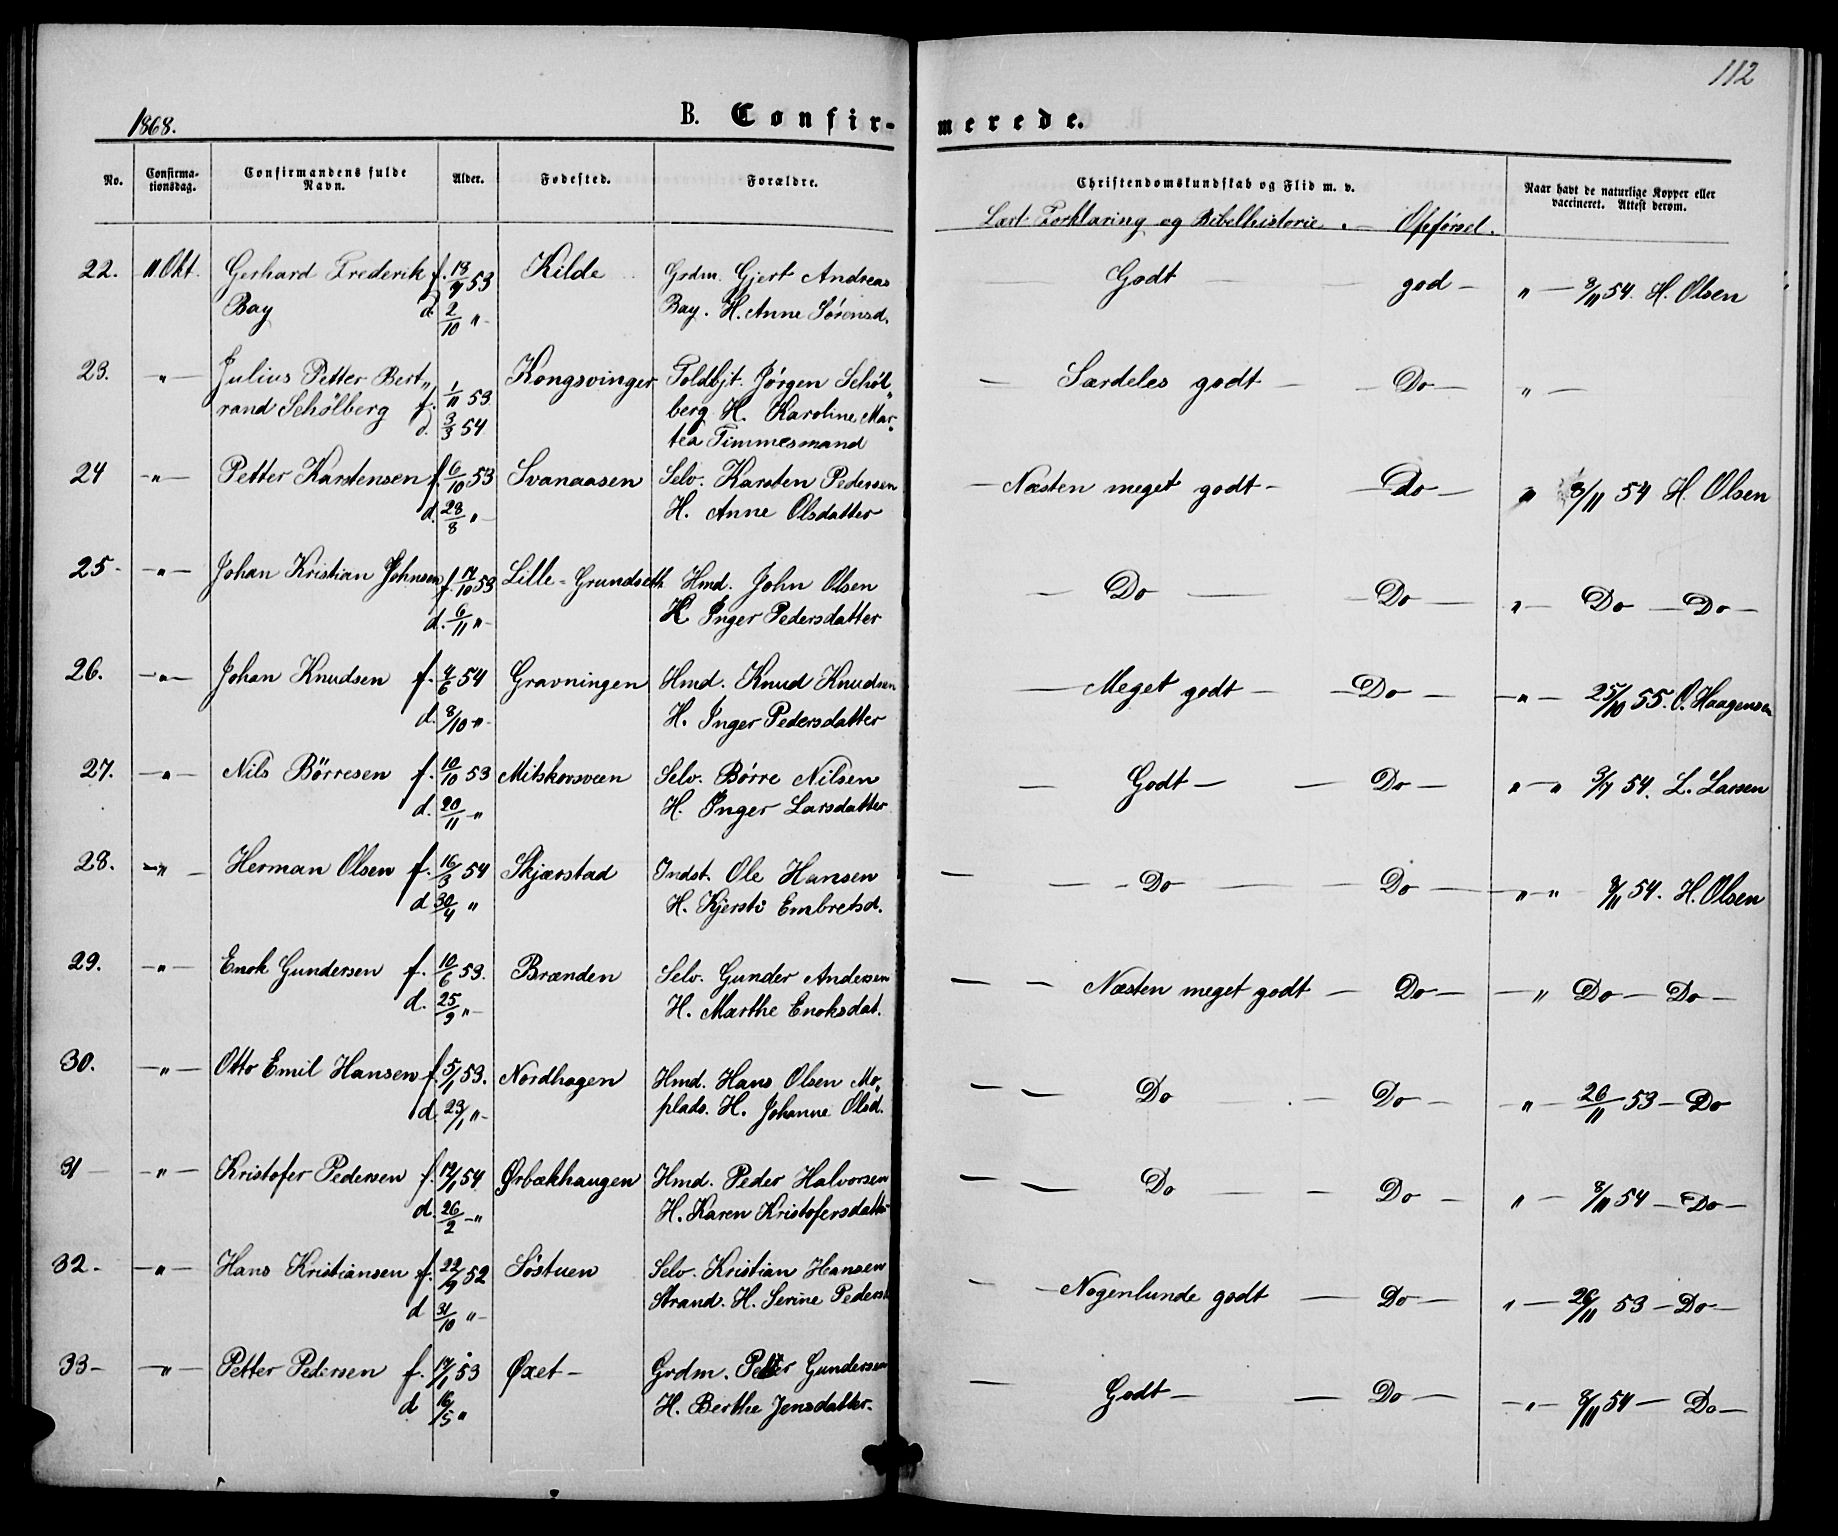 112
1868.
B. Confir-
merede.
No.
Confirma-
tionsdag.
Confirmandens fulde
Navn.
Alder.
Fødested.
Forældre.
Christendomskundskab og Flid m. v.
Naar havt de naturlige Kopper eller
vaccineret. Attest derom.
Lært Forklaring og Bibelhistorie. — Opførsel.
22. 11 Okt. Gerhard Frederik f. 13/9 53 Kilde Grdm. Gjert Andreas — Godt — god — " — 8/11 54. H. Olsen
Bay d. 2/10 " — Bay. H. Anne Sørensd.
23. — " — Julius Petter Bert„ Kongsvinger Toldbjt. Jörgen Schöl„ — Særdeles godt — Do — " —
rand Schölberg f. 1/11 53 berg H. Karoline Mar„
d. 3/3 54 tea Timmesmand
24 — " — Petter Karstensen f. 6/10 53 Svanaasen Selv. Karsten Pedersen — Næsten meget godt — Do — " 8/11 54 H. Olsen
d. 28/8 " — H. Anne Olsdatter
25 — " — Johan Kristian Johnsen f. 17/10 53 Lille-Grundseth Hmd. John Olsen — Do — Do — " — Do — Do —
d. 6/11 " — H. Inger Pedersdatter
26. — " — Johan Knudsen f. 4/6 54 Gravningen Hmd. Knud Knudsen — Meget godt — Do — " — 25/10 55. O. Haagensen
d. 8/10 " — H. Inger Pedersdatter
27. — " — Nils Börresen f. 10/10 53 Mitskovsveen Selv. Börre Nilsen — Godt — Do — " — " 3/7 54. L. Larsen
d. 20/11 — " H. Inger Larsdatter
28. — " — Herman Olsen f. 16/3 54 Skjærstad Indst. Ole Hansen — Do — Do — " — " 8/11 54. H. Olsen
d. 30/4 " H. Kjersti Embretsd.
29. — " — Enok Gundersen f. 10/6 53. Brænden Selv. Gunder Andersen — Næsten meget godt — Do — " Do — Do —
d. 25/9 " — H. Marthe Enoksdat.
30. — " — Otto Emil Hansen f. 5/1 53. Nordhagen Hmd. Hans Olsen Mo„ — Do — Do — " — 26/11 53 — Do
d. 23/1 " — plads. H. Johanne Olsd.
31 — " — Kristofer Pedersen f. 19/1 54 Ørbækhaugen Hmd. Peder Halvorsen — Do — Do — " — 8/11 54 — Do —
d. 26/2 — " H. Karen Kristofersdatter
32. — " — Hans Kristiansen f. 22/9 52 Söstuen Selv. Kristian Hansen — Nogenlunde godt — Do — " — 26/11 53 — Do —
d. 31/10 " — Strand. H. Serine Pedersd
33 — " — Petter Pedersen f. 17/1 53 Øxet — Grdm. Petter Gundersen — Godt — Do — " — 8/11 54 — Do —
d. 16/5 " H. Berthe Jensdatter.